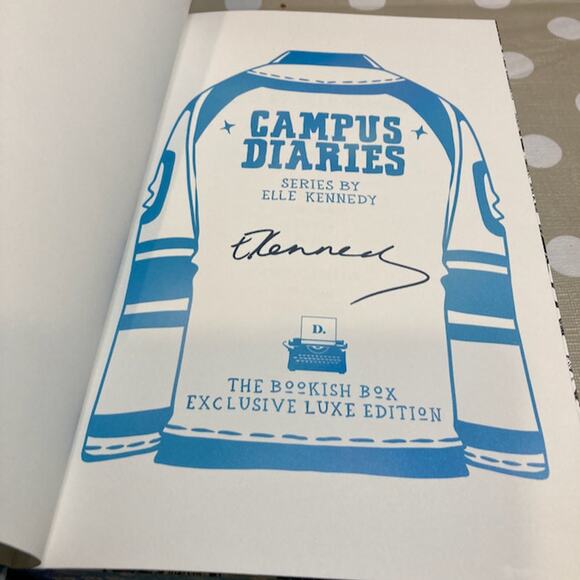 CAMPUS
DIARIES
SERIES BY
ELLE KENNEDY
E.Kennedy
D.
THE BOOKISH BOX
EXCLUSIVE LUXE EDITION